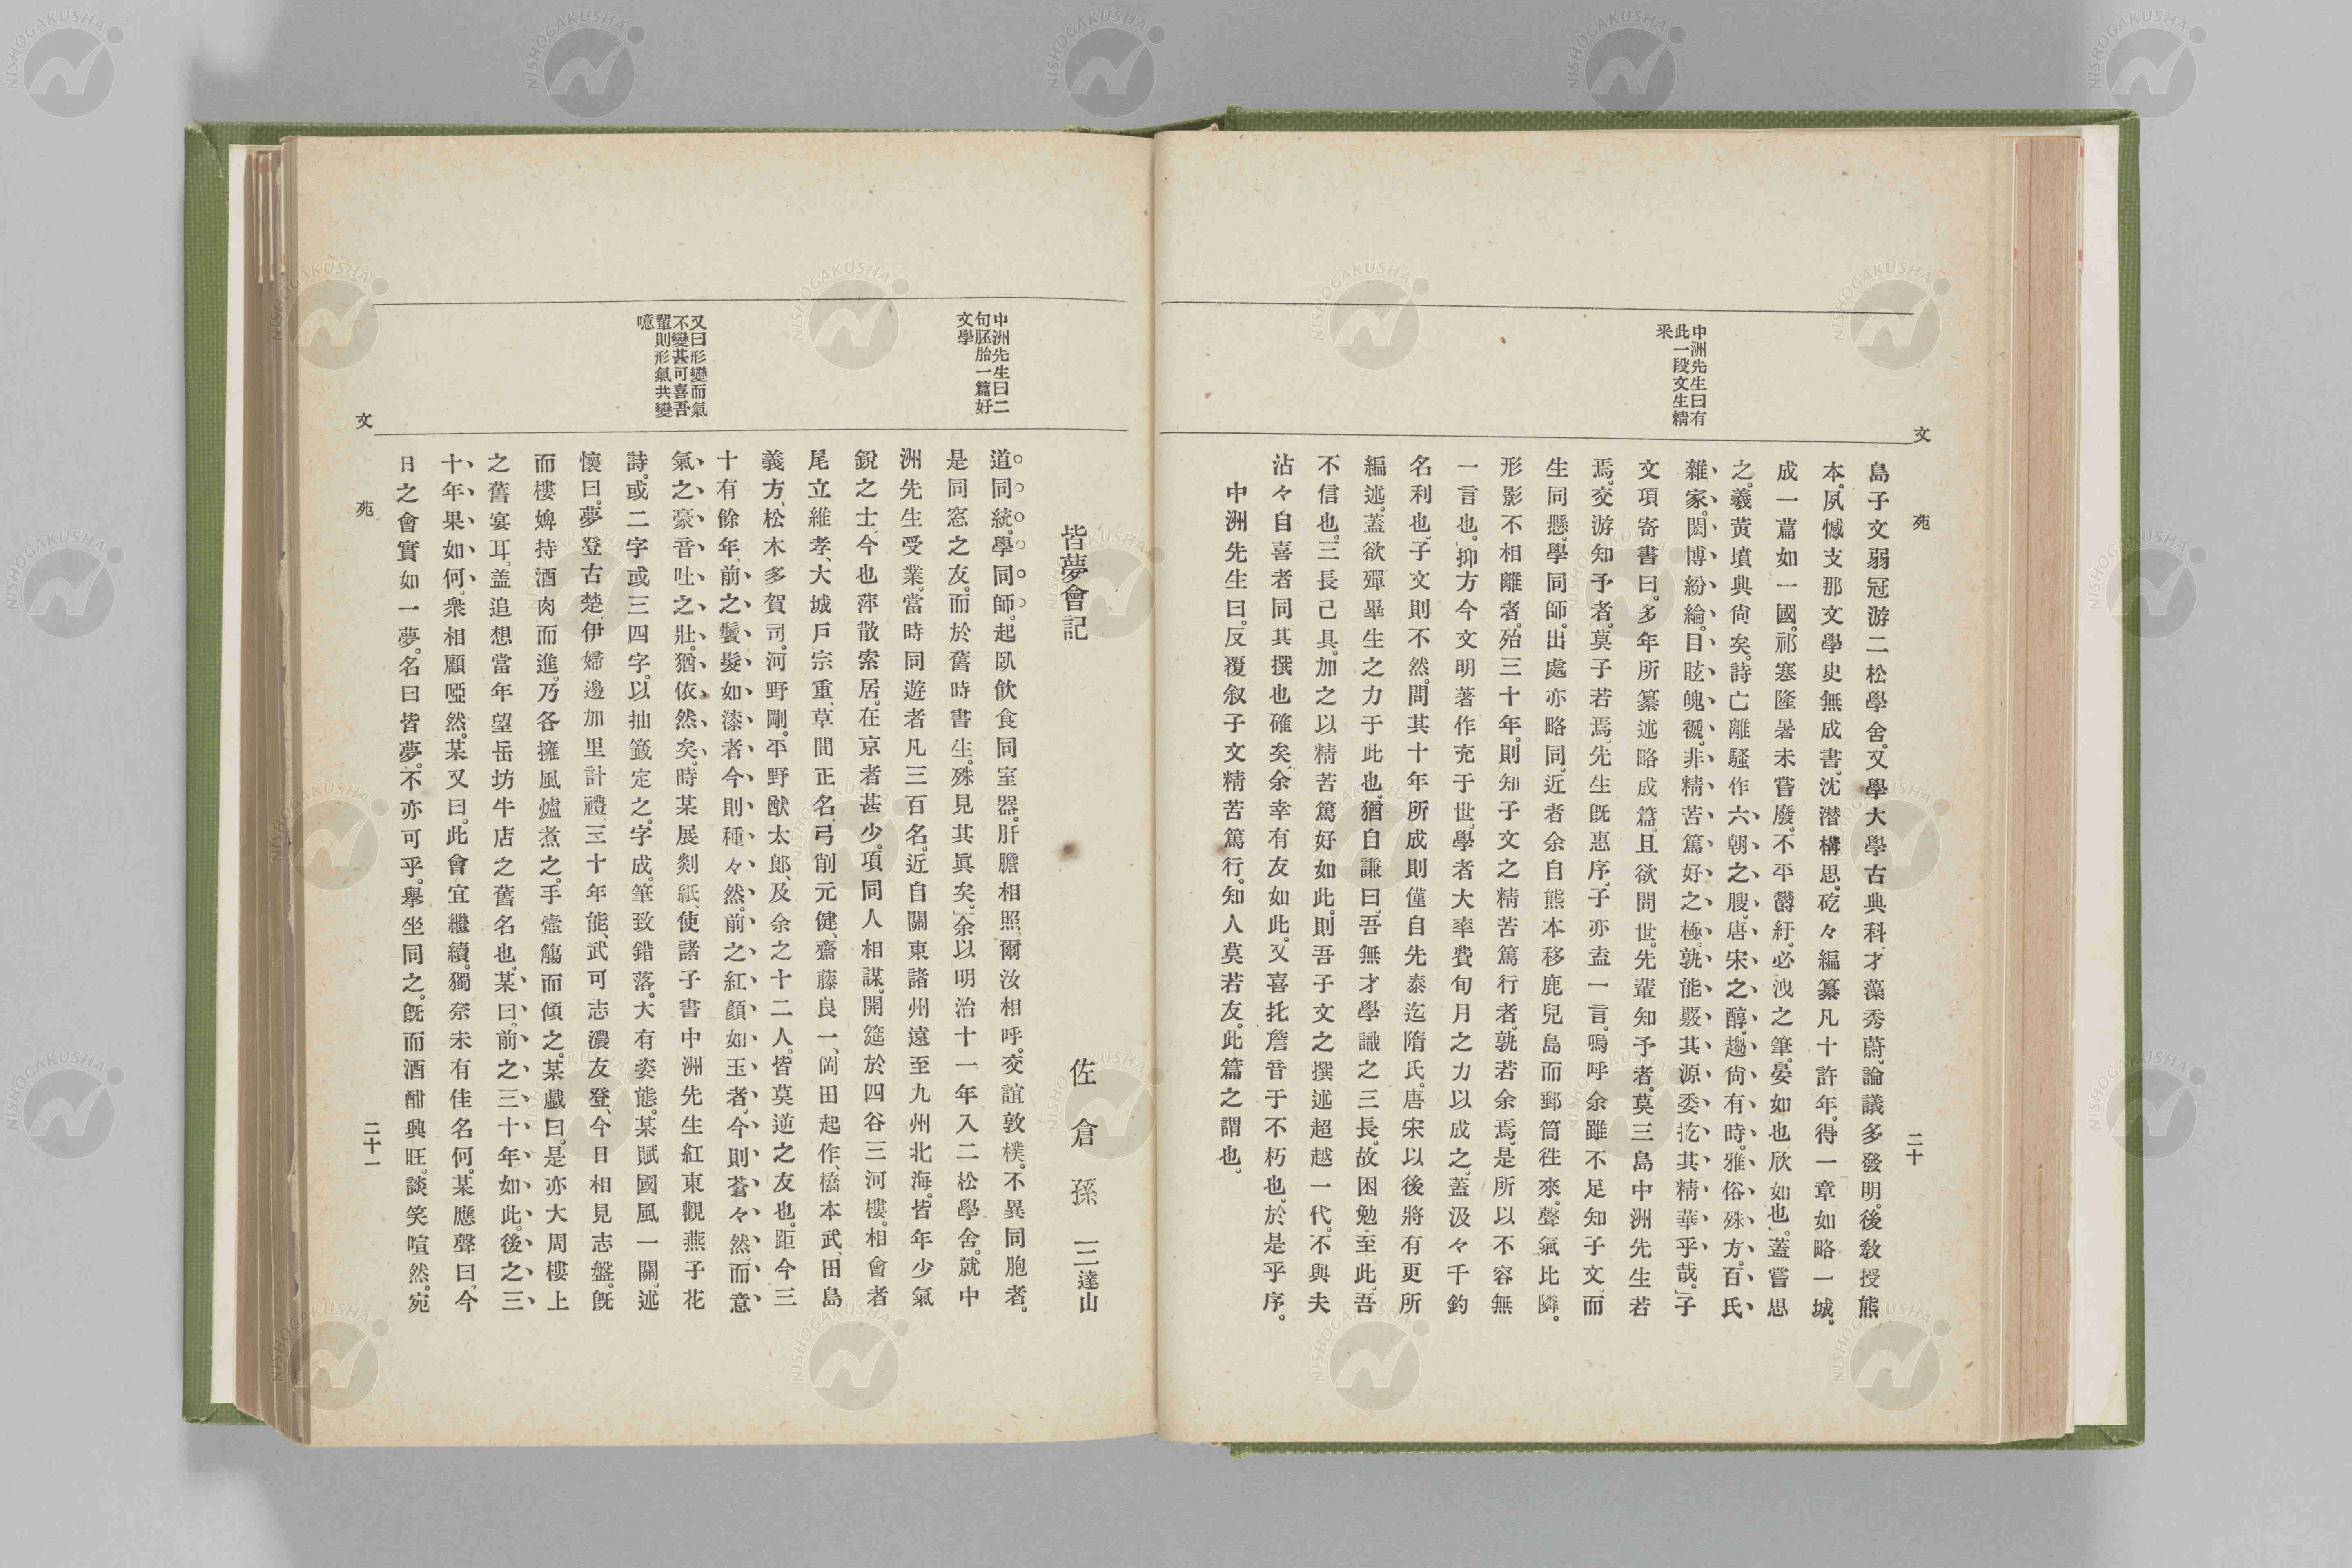 文苑
二十
中洲先生曰有
此一段文生精
釆
島子文弱冠游二松學舍。又學大學古典科。才藻秀蔚、論議多發明。後敎授熊
本。夙憾支那文學史無成書。沈潜構思。矻々編纂凡十許年。得一章如略一城。
成一篇如一國。祁寒隆暑未嘗廢。不平欝紆。必洩之筆。晏如也欣如也」蓋嘗思
之。羲黄墳典尙矣。詩亡離騷作六朝之腴。唐宋之醇。趨尙有時。雅俗殊方。百氏
雜家。閎博紛綸。目眩魄褫。非精苦篤好之極。孰能覈其源委扢其精華乎哉。」子
文項寄書曰。多年所纂述略成篇。且欲問世。先輩知予者。莫三島中洲先生若
焉。交游知予者。莫子若焉。先生旣惠序。子亦盍一言。嗚呼余雖不足知子文、而
生同懸。學同師。出處亦略同。近者余自熊本移鹿兒島而郵筒徃來。聲氣比隣。
形影不相離者。殆三十年。則知子文之精苦篤行者。孰若余焉。是所以不容無
一言也。抑方今文明著作充于世。學者大率費旬月之力以成之。蓋汲々千釣
名利也。子文則不然。問其十年所成則僅自先泰迄隋氏。唐宋以後將有更所
編述。蓋欲殫畢生之力于此也。猶自謙曰。吾無才學識之三長。故困勉至此。吾
不信也。三長己具。加之以精苦篤好如此。則吾子文之撰述超越一代。不與夫
沾々自喜者同其撰也確矣。余幸有友如此。又喜托詹音于不朽也、於是乎序。
中洲先生曰。反覆叙子文精苦篤行。知人莫若友。此篇之謂也。
中洲先生曰二
句胚胎一篇好
文學
又曰形變而氣
不變甚可喜吾
輩則形氣共變
噫
皆夢會記
佐倉孫三達山
道同統。學同師。起臥飮食同室器。肝膽相照、爾汝相呼。交誼敦樸。不異同胞者。
是同窓之友。而於舊時書生。殊見其眞矣。」余以明治十一年入二松學舍。就中
洲先生受業。當時同遊者凡三百名。近自關東諸州遠至九州北海。皆年少氣
銳之士、今也萍散索居。在京者甚少。項同人相謀。開筵於四谷三河樓。相會者
尾立維孝、大城戸宗重、草間正名、弓削元健、齋藤良一、岡田起作、橋本武、田島
義方、松木多賀司。河野剛。平野猷太郎、及余之十二人。皆莫逆之友也。距今三
十有餘年。前之鬢髮如漆者今則種々然。前之紅顏如玉者、今則蒼々然、而意
氣之豪音吐之壯。猶依然矣。時某展剡紙、使諸子書中洲先生紅東觀燕子花
詩。或二字或三四字。以抽籤定之。字成。筆致錯落。大有姿態。某賦國風一闋。述
懷曰。夢登古楚伊婦邊加里計禮三十年能、武可志濃友登、今日相見志盤。旣
而樓婢持酒肉而進。乃各擁風爐煮之。手壺觴而傾之。某戲曰。是亦大周樓上
之舊宴耳。盖追想當年望岳坊牛店之舊名也。某曰。前之三十年如此。後之三
十年果如何。衆相顧啞然。某又曰。此會宜繼續。獨奈未有佳名何。某應聲曰。今
日之會實如一夢。名曰皆夢。不亦可乎。擧坐同之。旣而酒酣興旺。談笑喧然。宛
文苑
二十一